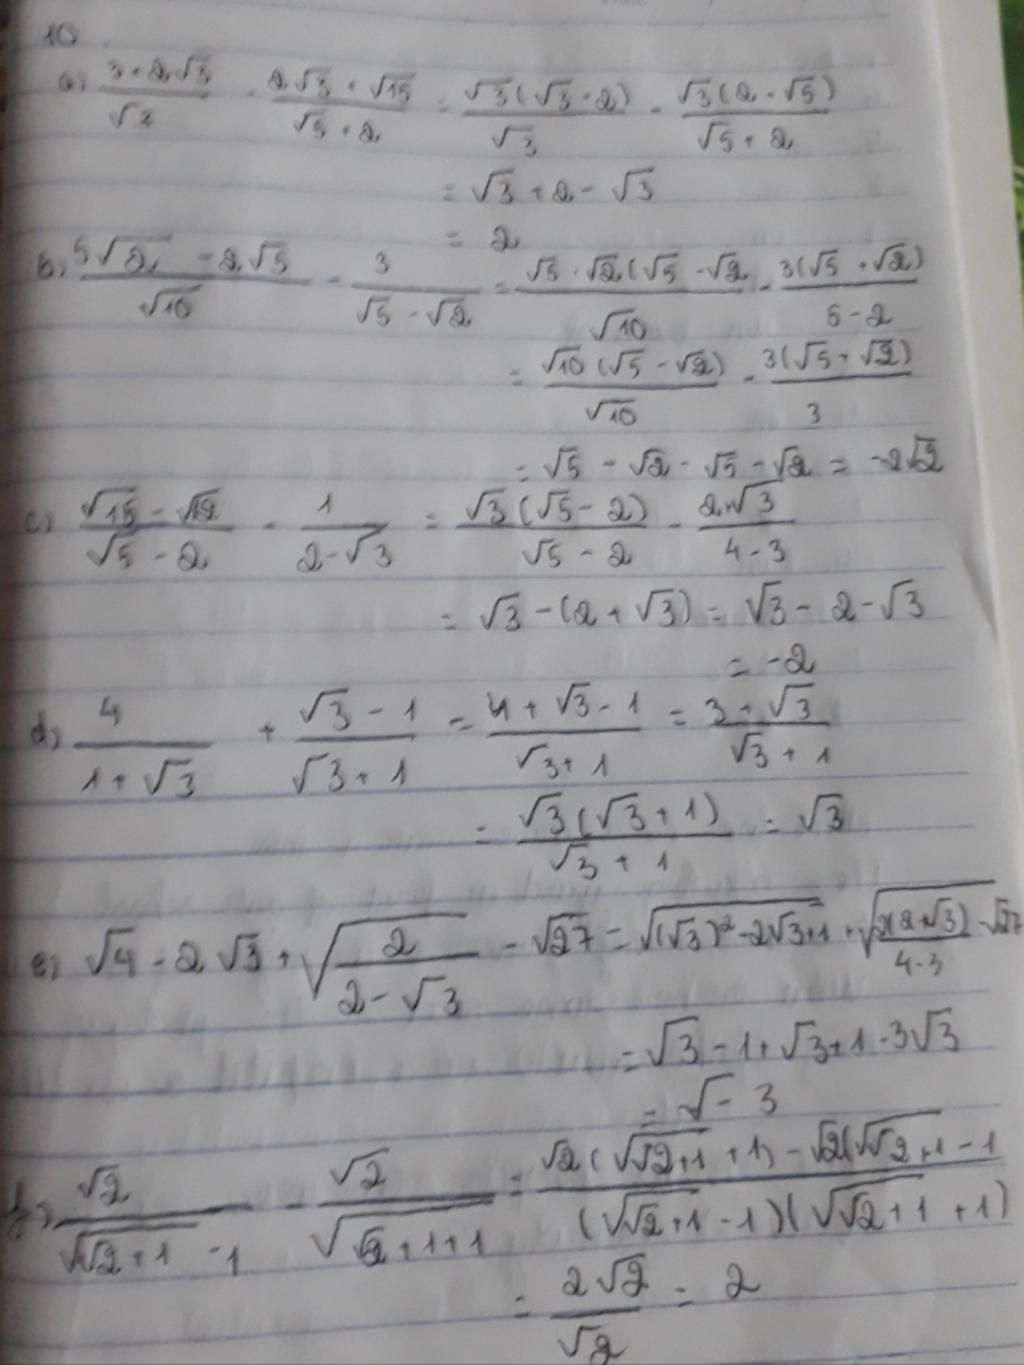 10
a) (3 + 2√3)/√3 - (2√3 + √15)/(√5 + 2) = √3(√3 + 2)/√3 - √3(2 + √5)/(√5 + 2)
= √3 + 2 - √3
= 2
b) (5√2 - 2√5)/√10 - 3/(√5 - √2) = √5 . √2(√5 - √2/√10 - 3(√5 + √2)/(5 - 2)
= √10(√5 - √2)/√10 - 3(√5 + √2)/3
= √5 - √2 - √5 - √2 = -2√2
c) (√15 - √12)/(√5 - 2) - 1/(2 - √3) = √3(√5 - 2)/(√5 - 2) - (2+√3)/(4 - 3)
= √3 - (2 + √3) = √3 - 2 - √3
= -2
d) 4/(1 + √3) + (√3 - 1)/(√3 + 1) = (4 + √3 - 1)/(√3 + 1) = (3 + √3)/(√3 + 1)
= √3(√3 + 1)/(√3 + 1) = √3
e) √4 - 2√3 + √(2/(2 - √3)) - √27 = √((√3)² - 2√3 + 1) + √(2(2 + √3)/(4 - 3)) - √27
= √3 - 1 + √3 + 1 - 3√3
= √- 3
f) √2/(√(√2 + 1) - 1) - √2/√(√2 + 1 + 1) = (√2(√(√2 + 1) + 1) - √2(√(√2 + 1) - 1)/((√(√2 + 1) - 1)(√(√2 + 1) + 1))
= 2√2/√2 = 2